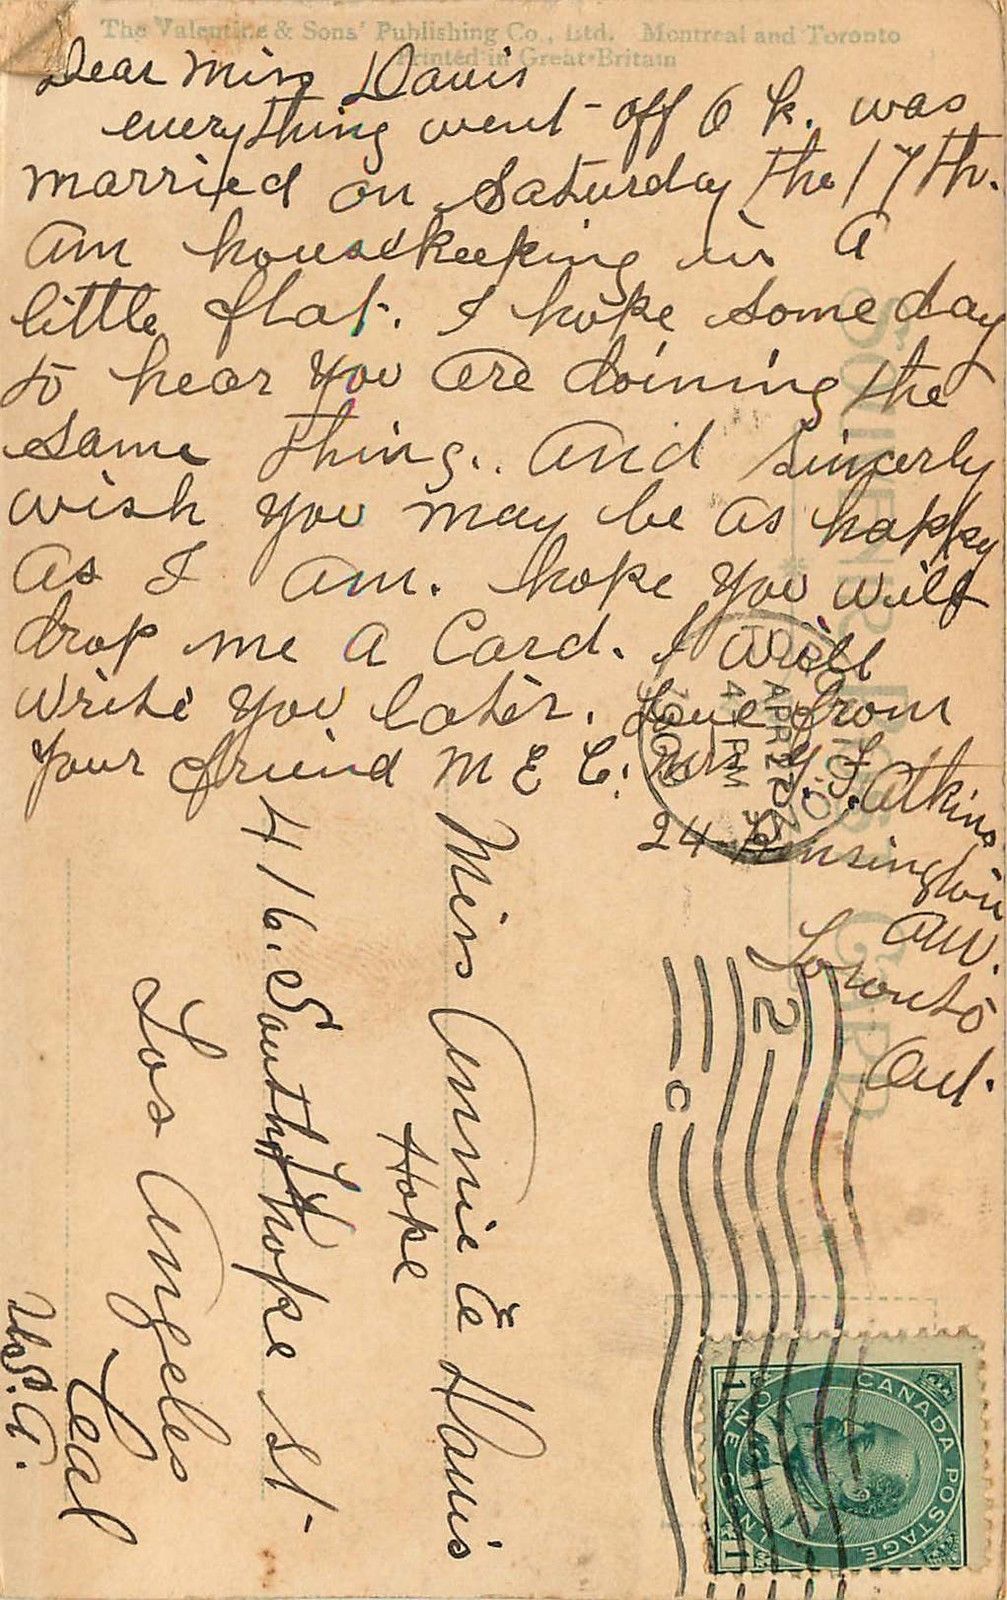 The Valentine & Sons' Publishing Co., Ltd. Montreal and Toronto
Printed in Great Britain
Dear Miss Davis
everything went off O k. was
married on Saturday the 17th.
am housekeeping in a
little flat. I hope some day
to hear you are doining the
same thing.. and sincerly
wish you may be as happy
as I am. hope you will
drop me a Card. I will
write you later. Love from
your friend M E C. Mrs Y. J. Atkins
24 Kensington
Ave.
Toronto
Ont.
Miss Annie E Davis
Hope
416. South Hope st
Los Angeles
Cal
U.S.A.
SOUVENIR POST CARD
TORONTO
APR 22
4 PM
2
C
CANADA POSTAGE
ONE CENT
1
1